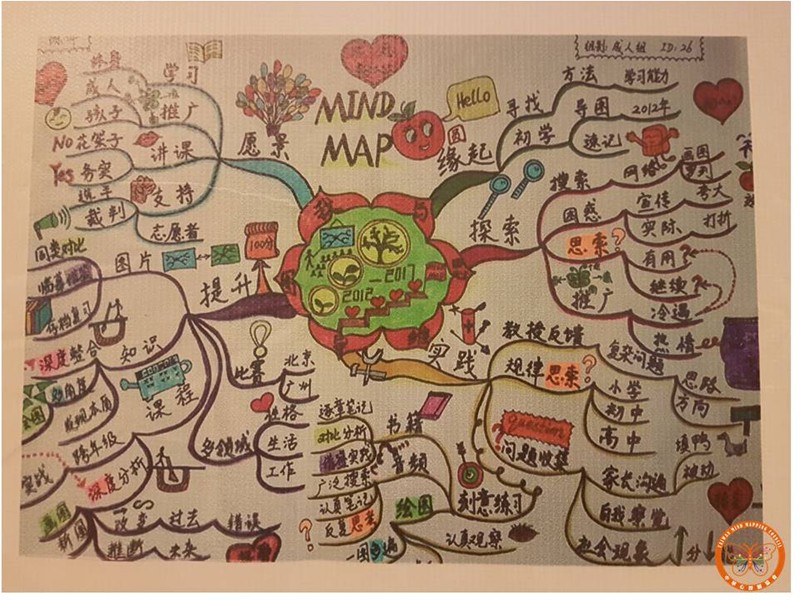 组别:成人组 ID:26
MIND
MAP
Hello
圆
缘起
寻找
方法
学习能力
导图
2012年
初学
速记
探索
搜索
网络
画图
罗列
困惑
宣传
夸大
实际
打折
思索?
有用?
继续?
推广
冷遇
热情
实践
教授反馈
规律
思索?
复杂问题
思路
方向
小学
初中
高中
question
问题收集
家长沟通
填鸭
被动
自我察觉
社会现象
刻意练习
书籍
逐章笔记
对比分析
音频
广泛搜索
认真笔记
反复思考
绘图
认真观察
提升
100分
图片
同类对比
知识
深度整合
课程
多角度
发现本质
跨年级
深度分析
实战
比赛
北京
广州
多领域
性格
生活
工作
画图
析图
改变
过去
错误
推断
未来
愿景
学习
终身
推广
成人
孩子
讲课
No花架子
Yes务实
支持
选手
裁判
志愿者
我与
2012—2017